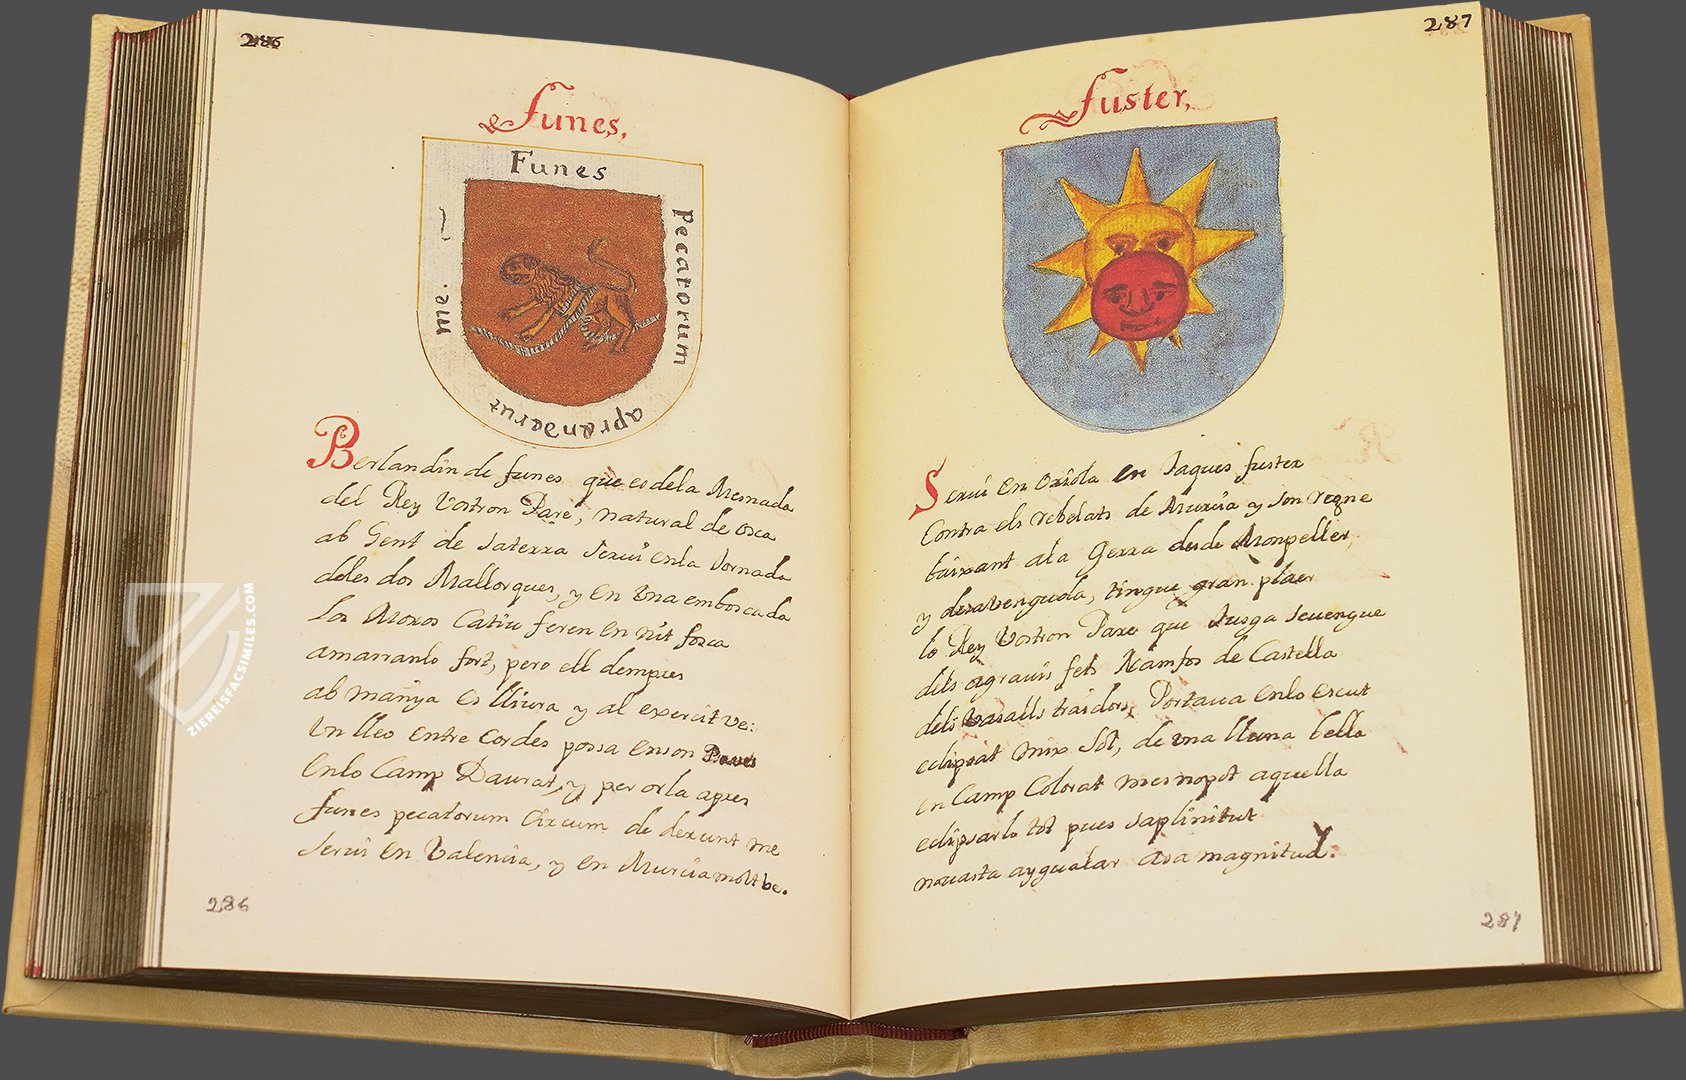 286
Funes,
Funes
pecatorum
aprenderut
me.
Berlandin de funes que es dela Mesnada
del Rey Vostron Pare, natural de osca
ab Gent de saterra serui enla Jornada
deles dos Mallorques, y en Vna emboscada
Los Moros Catiu feren en nit fosca
amarranlo fort, pero ell dempues
ab manya es lliura y al exercit ve:
Vn lleo entre Cordes possa enson Paues
Enlo Camp Daurat, y per orla aques
funes pecatorum Circum de derunt me
serui en Valencia, y en Murcia molt be.
286
287
fuster,
Serui en oriola en Jaques fuster
Contra els rebelats de Murcia y son regne
baixant ala Gerra desde Monpeller,
y desavenguda, tingue gran plaer
lo Rey Vostron Pare que Jusga seuengue
dels agrauis fets Namfos de Castella
dels Vasalls traidors, Portaua enlo escut
eclipsat mix Sol, de vna lluna bella
en Camp Colorat mes nopot aquella
eclipsarlo tot pues saplinitut
nouasta aygualar asa magnitud.
287
ZIEREISFACSIMILES.COM